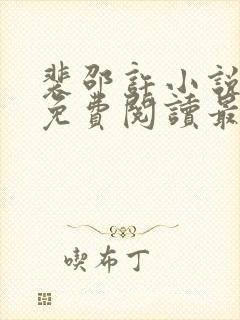 裴邵許小說
免費閱讀最
喫布丁